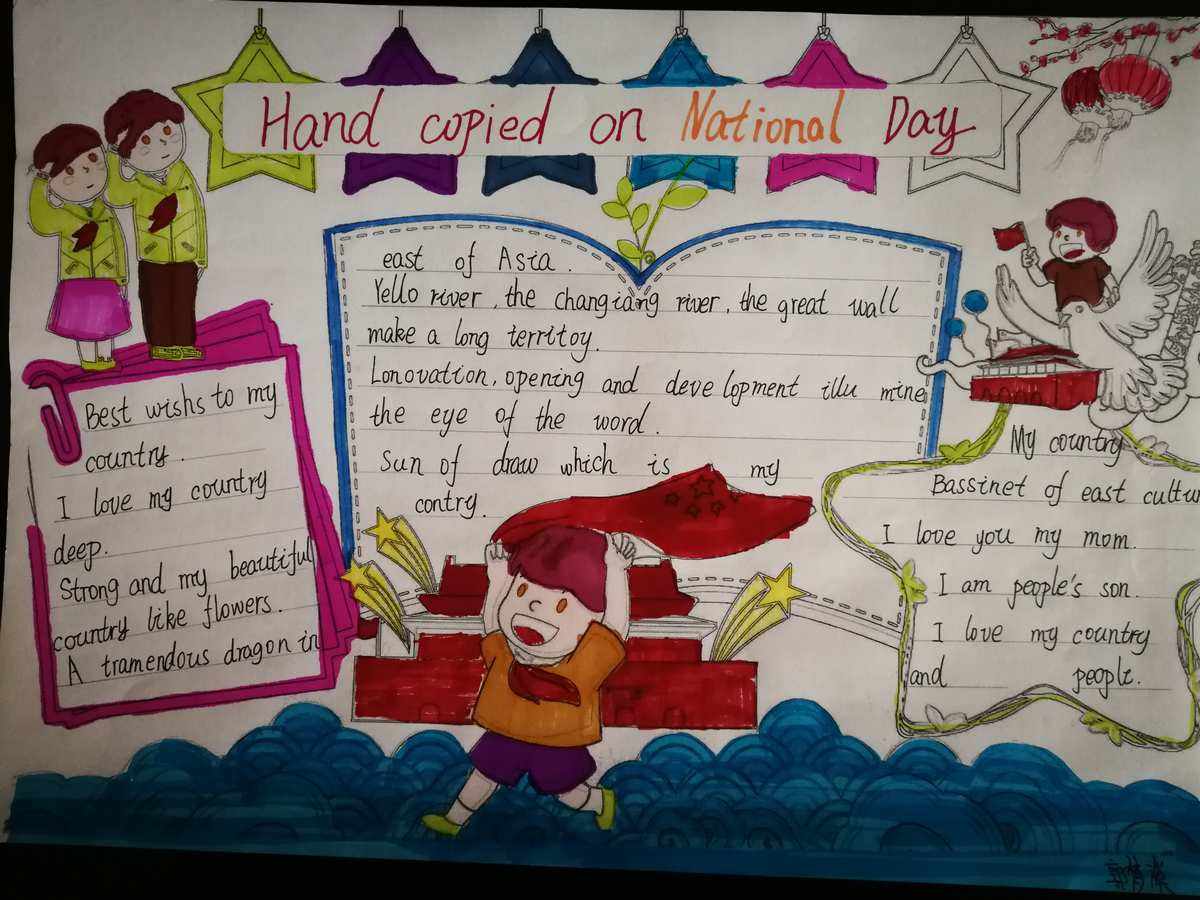 Hand copied on National Day
Best wishs to my
country.
I love my country
deep.
Strong and my beautiful
country like flowers.
A tramendous dragon in
east of Asia.
Yello river, the changiang river, the great wall
make a long territoy.
Lonovation, opening and deve lopment illu mine
the eye of the word.
Sun of draw which is my
contry.
My country
Bassinet of east cultur
I love you my mom.
I am people's son.
I love my country
and people.